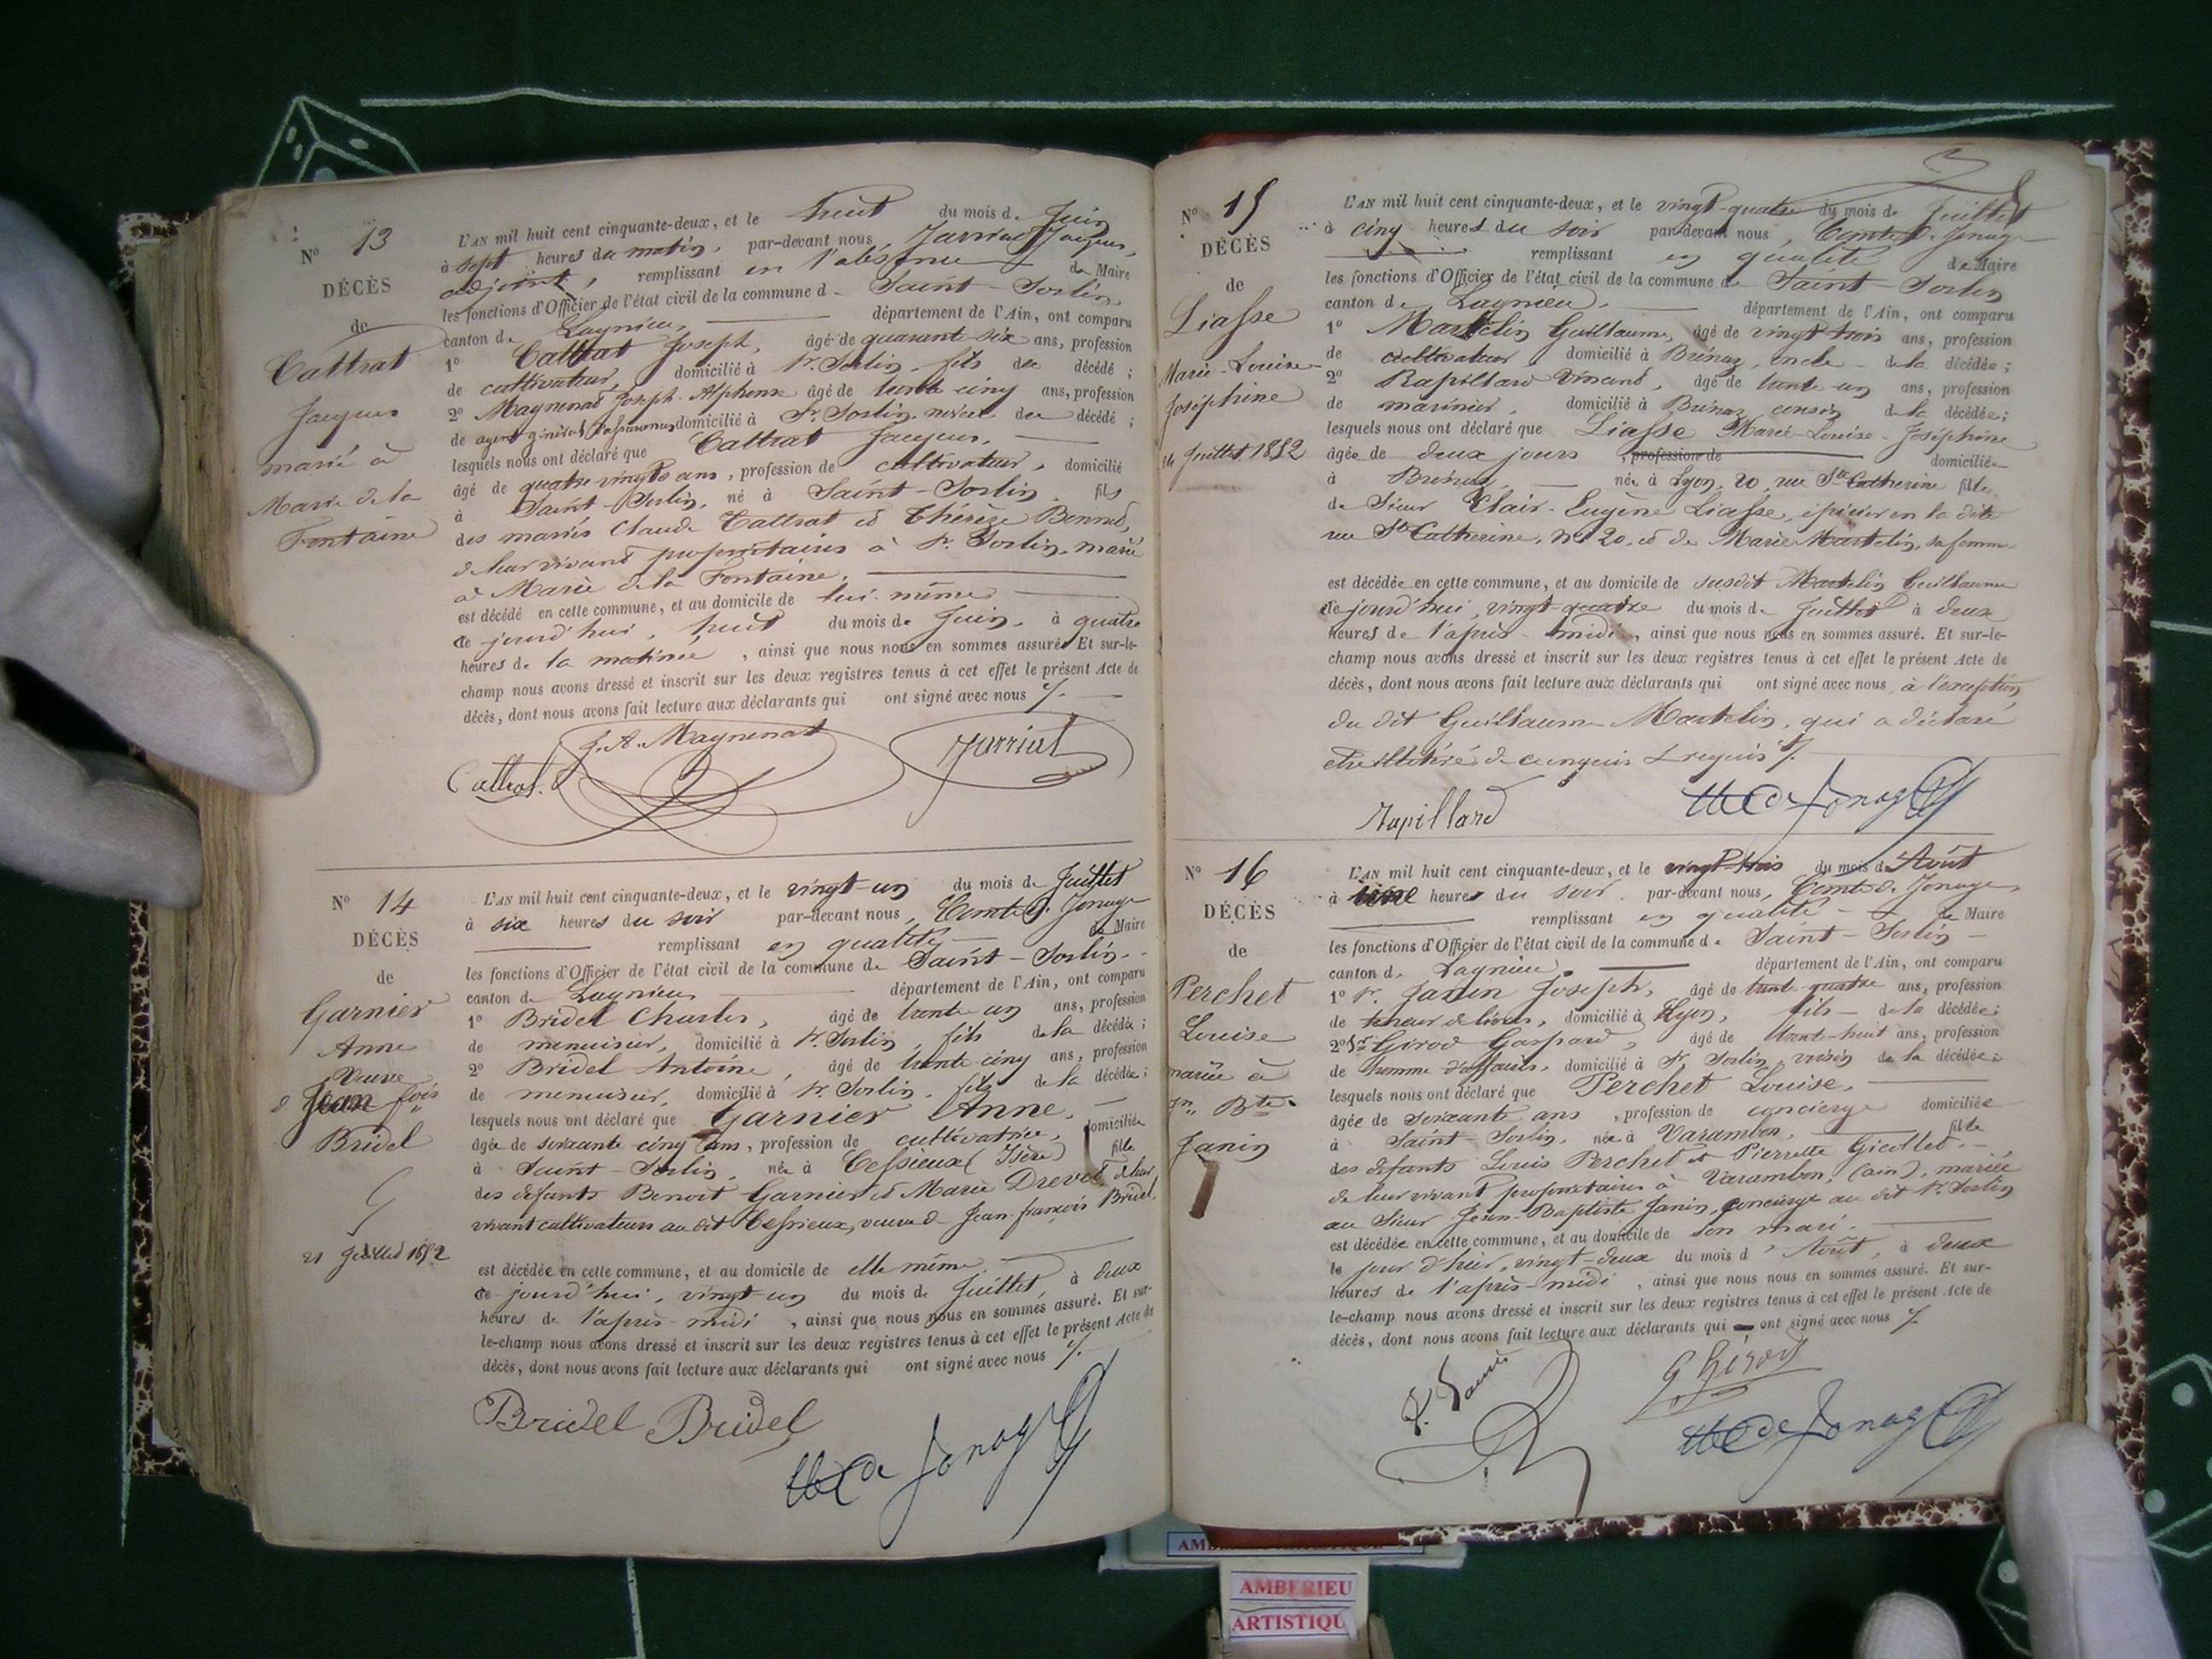 Nº 13
DÉCÈS
de
Cattrat
Jacques
marié à
Marie de la
Fontaine
L'AN mil huit cent cinquante-deux, et le huit du mois de Juin
à sept heures du matin, par-devant nous, Jarriat Jacques,
adjoint, remplissant en l'absence de Maire
les fonctions d'Officier de l'état civil de la commune d Saint-Sorlin,
canton de Lagnieu, département de l'Ain, ont comparu
1º Cattrat Joseph, âgé de quarante six ans, profession
de cultivateur, domicilié à St. Sorlin, fils du décédé ;
2º Magnenat Joseph-Alphonse âgé de trente cinq ans, profession
de agent général d'assurances domicilié à St. Sorlin, neveu du décédé ;
lesquels nous ont déclaré que Cattrat Jacques,
âgé de quatre vingts ans, profession de cultivateur, domicilié
à Saint-Sorlin, né à Saint-Sorlin, fils
des mariés Claude Cattrat et Thérèze Bonnard,
de leur vivant propriétaires à St. Sorlin, marié
à Marie de la Fontaine,
est décédé en cette commune, et au domicile de lui-même
ce jourd'hui, huit du mois de Juin, à quatre
heures de la matinée, ainsi que nous nous en sommes assuré. Et sur-le-
champ nous avons dressé et inscrit sur les deux registres tenus à cet effet le présent Acte de
décès, dont nous avons fait lecture aux déclarants qui ont signé avec nous ./.
Cattrat. J. A. Magnenat Jarriat
Nº 14
DÉCÈS
de
Garnier
Anne
Veuve
d Jean fois
Bridel
21 Juillet 1852
L'AN mil huit cent cinquante-deux, et le vingt-un du mois de Juillet
à six heures du soir par-devant nous, Comte de Jonage
remplissant en qualité de Maire
les fonctions d'Officier de l'état civil de la commune de Saint-Sorlin
canton de Lagnieu département de l'Ain, ont comparu
1º Bridel Charles, âgé de trente un ans, profession
de menuisier, domicilié à St. Sorlin, fils de la décédée ;
2º Bridel Antoine, âgé de trente cinq ans, profession
de menuisier, domicilié à St. Sorlin, fils de la décédée ;
lesquels nous ont déclaré que Garnier Anne,
âgée de soixante cinq ans, profession de cultivatrice, domiciliée
à Saint-Sorlin, née à Cessieux (Isère) fille
des défunts Benoit Garnier et Marie Drevet de leur
vivant cultivateurs au dit Cessieux, veuve d Jean-françois Bridel.
est décédée en cette commune, et au domicile de elle même,
ce jourd'hui, vingt un du mois de Juillet, à deux
heures de l'après-midi, ainsi que nous nous en sommes assuré. Et sur-
le-champ nous avons dressé et inscrit sur les deux registres tenus à cet effet le présent Acte de
décès, dont nous avons fait lecture aux déclarants qui ont signé avec nous ./.
Bridel Bridel
de Jonage
Nº 15
DÉCÈS
de
Liasse
Marie-Louise
Joséphine
24 Juillet 1852
L'AN mil huit cent cinquante-deux, et le vingt-quatre du mois de Juillet
à cinq heures du soir par-devant nous, Comte de Jonage
remplissant en qualité de Maire
les fonctions d'Officier de l'état civil de la commune de Saint-Sorlin
canton de Lagnieu, département de l'Ain, ont comparu
1º Martelin Guillaume, âgé de vingt-trois ans, profession
de cultivateur domicilié à Brénaz, oncle de la décédée ;
2º Rapillard Vincent, âgé de trente-un ans, profession
de marinier, domicilié à Brénaz cousin de la décédée ;
lesquels nous ont déclaré que Liasse Marie-Louise-Joséphine
âgée de deux jours, profession de domiciliée
à Brénaz, née à Lyon, 20, rue Ste Catherine fille
de Sieur Clair-Eugène Liasse, épicier en la dite
rue Ste Catherine, Nº 20, et de Marie Martelin, sa femme
est décédée en cette commune, et au domicile de susdit Martelin Guillaume
ce jourd'hui, vingt-quatre du mois de Juillet à deux
heures de l'après-midi, ainsi que nous nous en sommes assuré. Et sur-le-
champ nous avons dressé et inscrit sur les deux registres tenus à cet effet le présent Acte de
décès, dont nous avons fait lecture aux déclarants qui ont signé avec nous, à l'exception
du dit Guillaume Martelin, qui a déclaré
être illitéré de ce enquis & requis ./.
Rapillard de Jonage
Nº 16
DÉCÈS
de
Perchet
Louise
mariée à
Jn Bte
Janin
L'AN mil huit cent cinquante-deux, et le vingt-trois du mois de Août
à heures du soir par-devant nous, Comte de Jonage,
remplissant en qualité de Maire
les fonctions d'Officier de l'état civil de la commune de Saint-Sorlin
canton de Lagnieu, département de l'Ain, ont comparu
1º Sr. Janin Joseph, âgé de trente-quatre ans, profession
de teneur de livres, domicilié à Lyon, fils de la décédée;
2º Sr Girod Gaspard, âgé de trente-huit ans, profession
de homme d'affaires, domicilié à St. Sorlin, voisin de la décédée;
lesquels nous ont déclaré que Perchet Louise,
âgée de soixante ans, profession de concierge domiciliée
à Saint-Sorlin, née à Varambon, fille
des défunts Louis Perchet et Pierrette Gicollet,
de leur vivant propriétaires à Varambon, (ain), mariée
au Sieur Jean-Baptiste Janin, concierge au dit St. Sorlin
est décédée en cette commune, et au domicile de son mari
le jour d'hier, vingt-deux du mois d'Août, à deux
heures de l'après-midi, ainsi que nous nous en sommes assuré. Et sur-
le-champ nous avons dressé et inscrit sur les deux registres tenus à cet effet le présent Acte de
décès, dont nous avons fait lecture aux déclarants qui ont signé avec nous ./.
J. Janin G Girod
de Jonage
AMBERIEU
ARTISTIQU